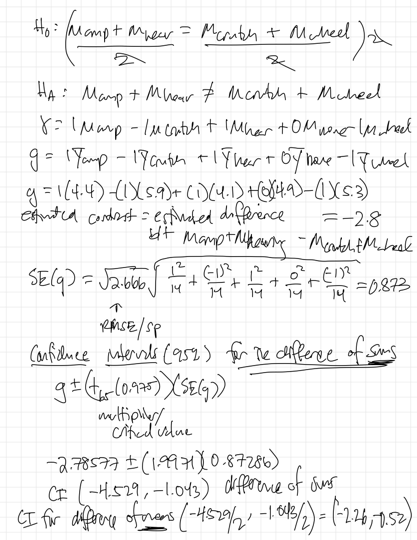 H₀: (μamp + μhear / 2 = μcrutch + μwheel / 2) 2
HA: μamp + μhear ≠ μcrutch + μwheel
γ = 1μamp - 1μcrutch + 1μhear + 0μnone - 1μwheel
g = 1Ȳamp - 1Ȳcrutch + 1Ȳhear + 0Ȳnone - 1Ȳwheel
g = 1(4.4) - (1)(5.9) + (1)(4.1) + (0)(4.9) - (1)(5.3)
estimated contrast = estimated difference = -2.8
btt μamp + μhearing - μcrutch + μwheel
SE(g) = √2.666 √(1²/14 + (-1)²/14 + 1²/14 + 0²/14 + (-1)²/14) = 0.873
↑
RMSE/sp
Confidence Intervals (95%) for the difference of sums
g ± (t₆₅(0.975))(SE(g))
multiplier/
critical value
-2.78577 ± (1.9971)(0.87286)
CI (-4.529, -1.043) difference of sums
CI for difference of means (-4.529/2, -1.043/2) = (-2.26, -0.52)